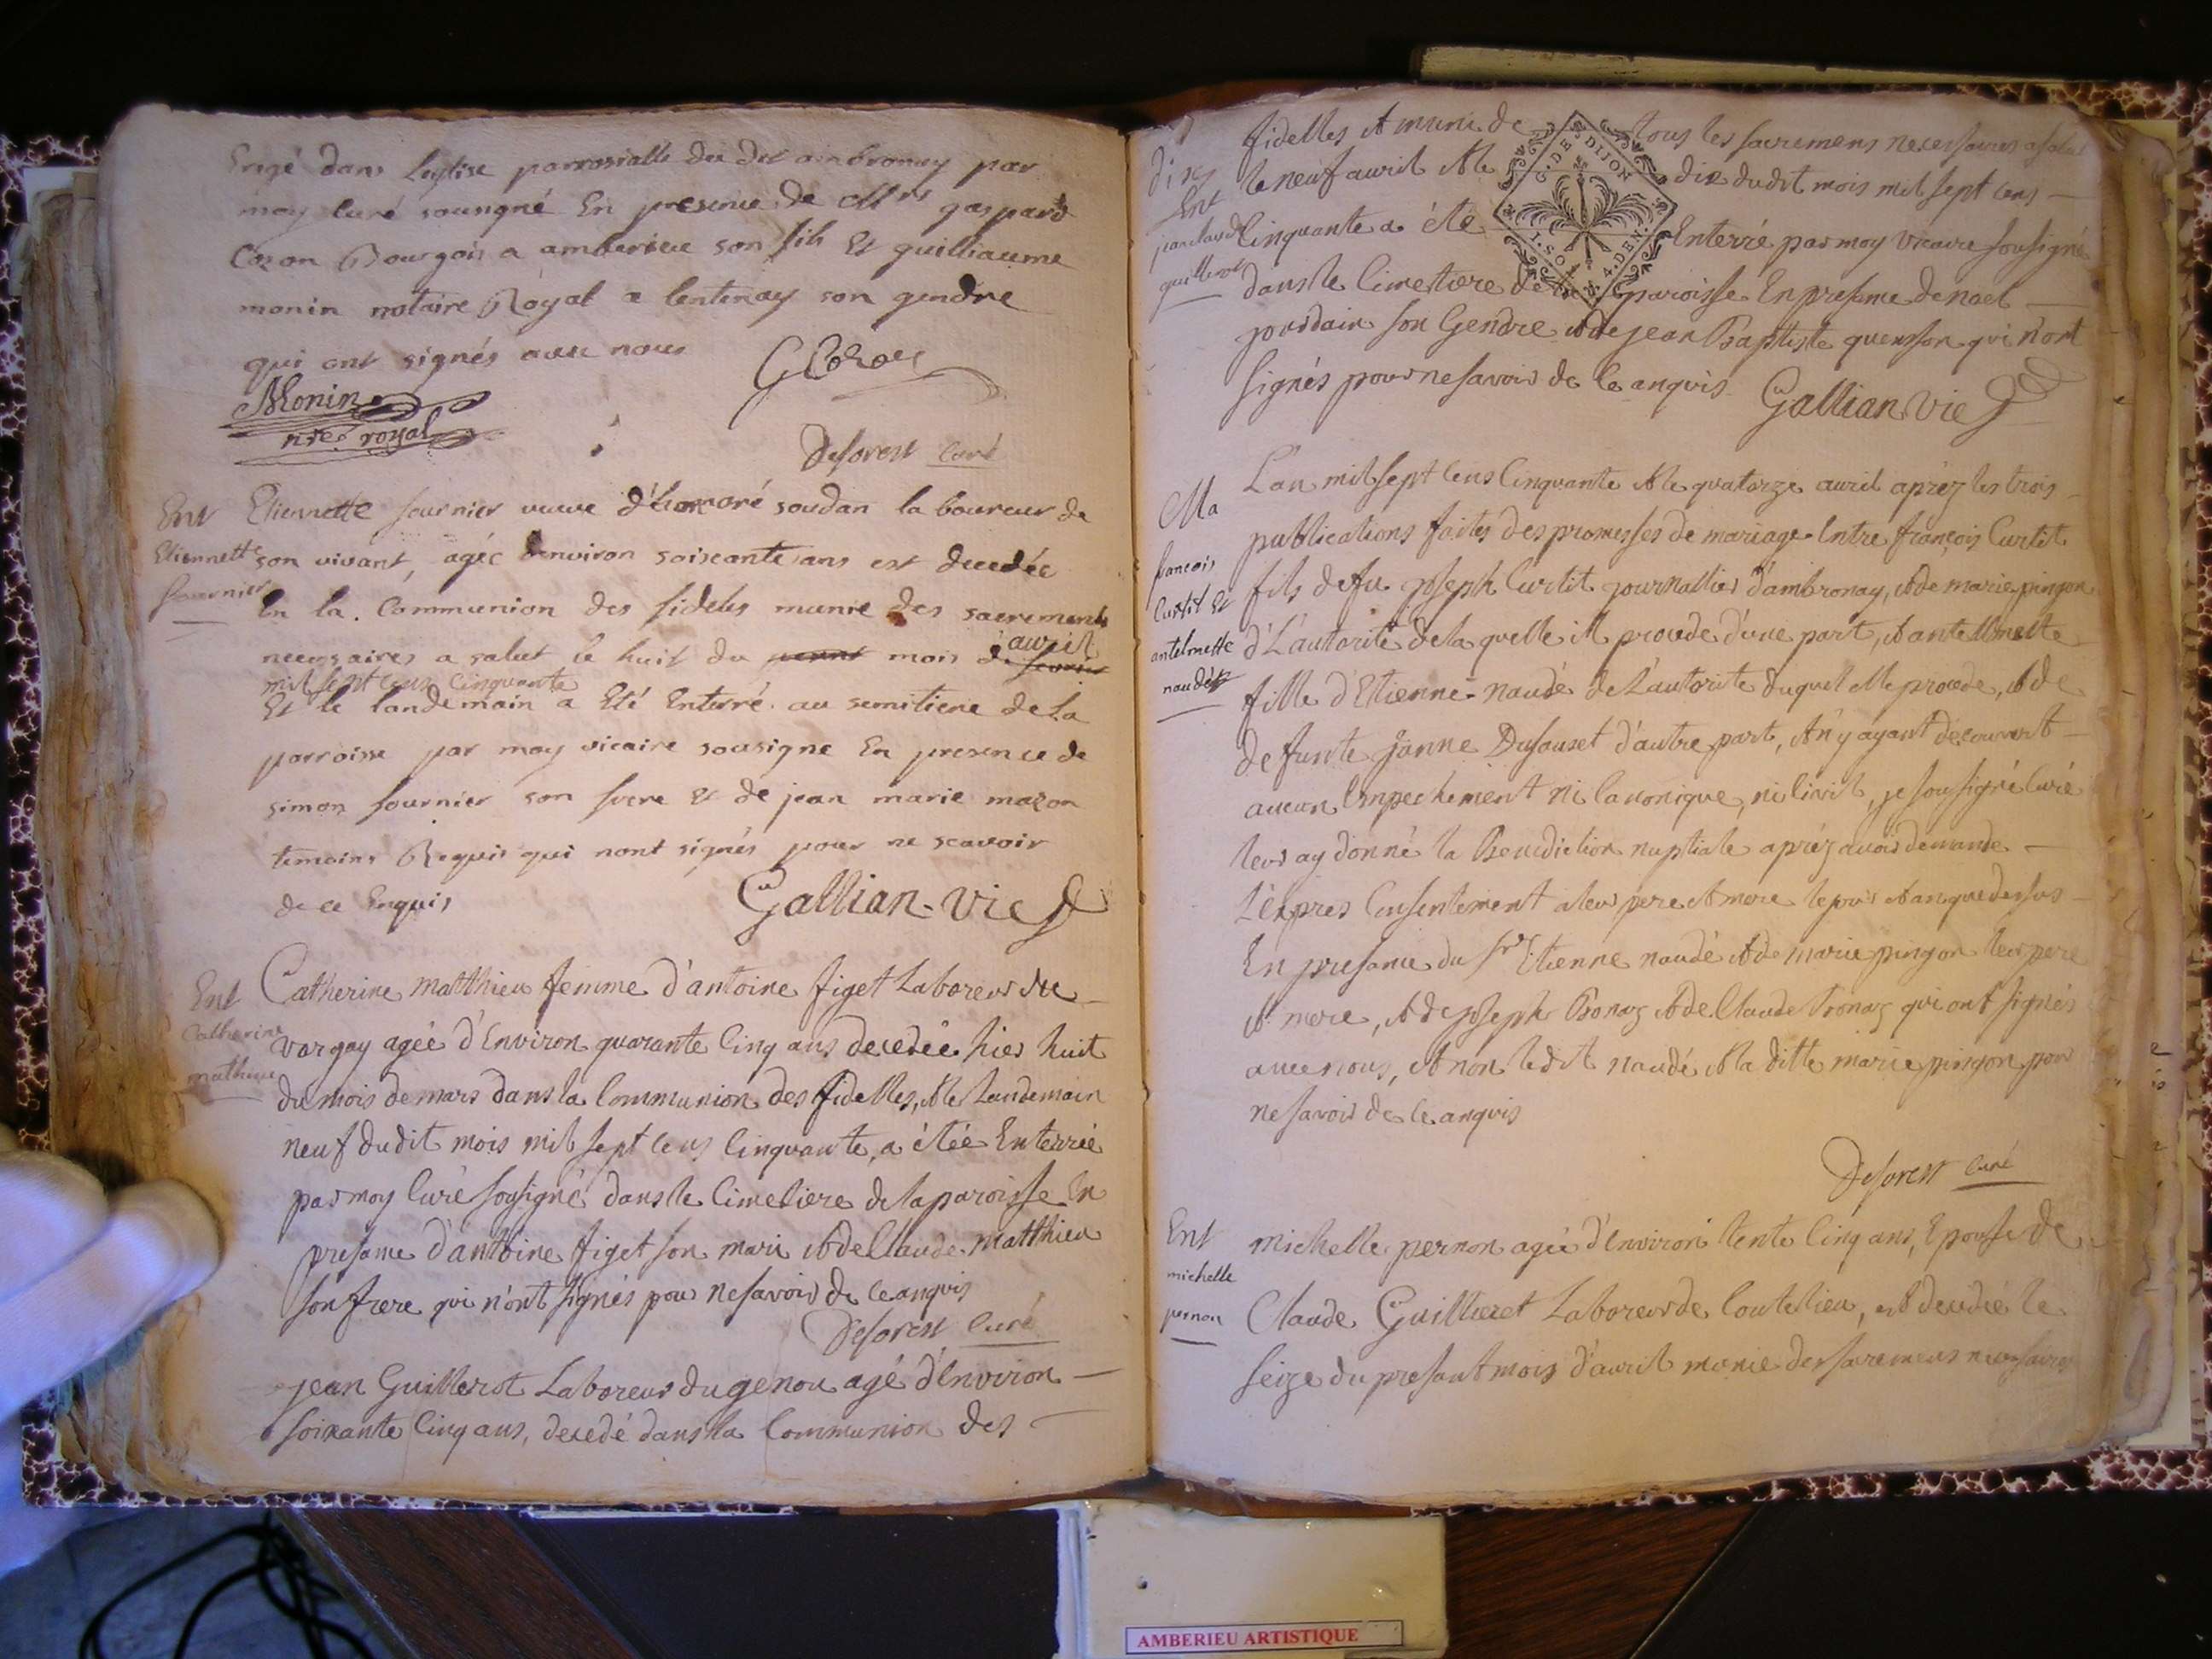 Erigé dans Leglise parroissialle du dit ambronay par
moy curé sousigné En presence de Mrs gaspard
Cozon Bourgois a amberieu son fils Et guilliaume
monin notaire Royal a lentenay son gendre
qui ont signés avec nous
G Cozon
Monin
nre royal
Deforest curé
Ent
Etiennette
fournier
Etiennette fournier veuve d'honoré soudan laboureur de
son vivant, agée d'environ soiscante ans est decedée
En la Communion des fideles munie des sacrements
necessaires a salut le huit du mois d'avril
mil sept cens cinquante
Et le landemain a Eté Enterré au semitiere de la
parroisse par moy vicaire sousigne En presence de
simon fournier son frere Et de jean marie mazon
temoins Requis qui nont signés pour ne scavoir
de ce Enquis
Gallian vic
Ent
Catherine
mathieu
Catherine Matthieu femme d'antoine figet Laboreur de
Vorgey agée d'Environ quarante Cinq ans decedée hier huit
du mois de mars dans la Communion des fidelles, et le Landemain
neuf dudit mois mil sept cens Cinquante, a étée Enterrée
par moy Curé sousigné dans le Cimetiere de la paroisse En
presame d'antoine figet son mari et de Claude Matthieu
son frere qui n'ont signés pour ne savoir de ce anquis
Deforest Curé
jean Guillerot Laboreur du genou agé d'Environ
soixante Cinq ans, decedé dans la Communion des
fidelles et muni de tous les sacremens necessaires a salut
le neuf avril et le dix dudit mois mil sept cens
Cinquante a été Enterré par moy vicaire sousigné
dans le Cimetiere de la paroisse En presame de noel
jourdain son Gendre et de jean Baptiste quenson qui n'ont
signés pour ne savoir de ce anquis
Gallian vic
Ent
guillerot
G. DE DIJON
I. SOL 4. DEN.
Ma
francois
Curtit Et
antelmette
naudé
L'an mil sept cens Cinquante et le quatorze avril apréz les trois
publications faites des promesses de mariage Entre françois Curtit
fils de fu joseph Curtit journallier d'ambronay, et de marie pingon
d'L'autorité de laquelle il procede d'une part, et antelmette
fille d'Etienne naudé de L'autorité duquel elle procede, et de
defunte janne Dufouset d'autre part, et n'y ayant decouvert
aucun Empechement ni Canonique, ni Civil, je sousigné Curé
leur ay donné la Benediction nuptiale apréz avoir demandé
L'expres Consentement a leur pere et mere le jour et an que dessus
En presame du sr Etienne naudé et de marie pingon leur pere
et mere, et de joseph Bonaz et de Claude Bonaz qui ont signés
avec nous, et non ledit naudé et la ditte marie pingon pour
ne savoir de ce anquis
Deforest curé
Ent
michelle
pernon
Michelle pernon agée d'Environ tente Cinq ans, Epouse de
Claude Guillieret Laboreur de Coutelieu, est decedée le
seize du presant mois d'avril munie des sacremens necessaires
AMBERIEU ARTISTIQUE